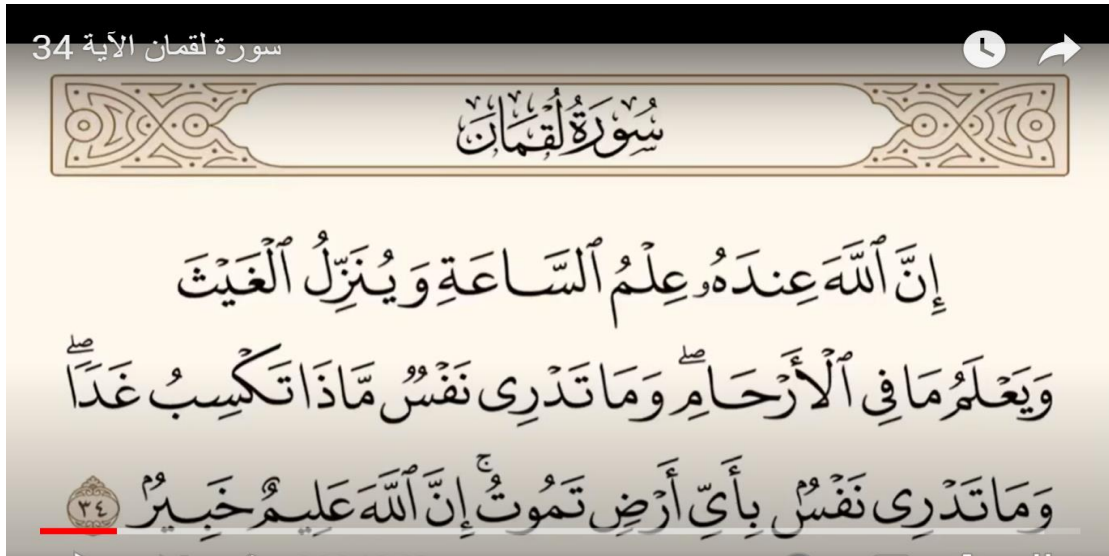 سورة لقمان الآية 34
سُورَةُ لُقْمَان
إِنَّ ٱللَّهَ عِندَهُۥ عِلْمُ ٱلسَّاعَةِ وَيُنَزِّلُ ٱلْغَيْثَ
وَيَعْلَمُ مَا فِى ٱلْأَرْحَامِ ۖ وَمَا تَدْرِى نَفْسٌ مَّاذَا تَكْسِبُ غَدًا ۖ
وَمَا تَدْرِى نَفْسٌۢ بِأَىِّ أَرْضٍ تَمُوتُ ۚ إِنَّ ٱللَّهَ عَلِيمٌ خَبِيرٌۢ ٣٤